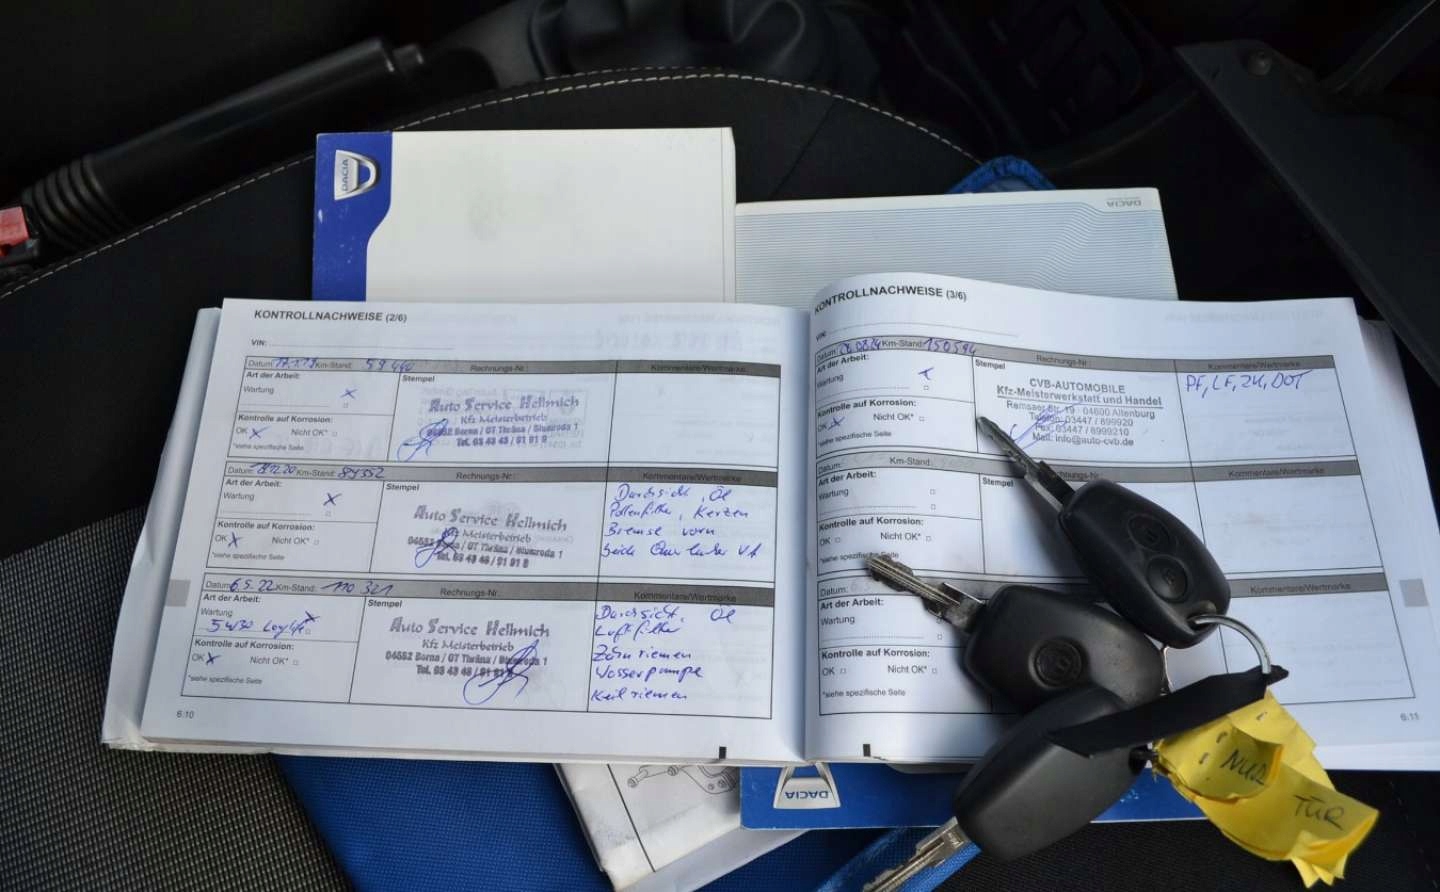 DACIA
DACIA
KONTROLLNACHWEISE (2/6)
VIN:
Datum: Km-Stand: 59440 Rechnungs-Nr.: Kommentare/Wertmarke
Art der Arbeit:
Wartung x
Stempel
Auto Service Hellmich
Kfz Meisterbetrieb
04552 Borna / OT Thräna / Blumroda 1
Tel. 03 43 48 / 91 91 8
Kontrolle auf Korrosion:
OK x Nicht OK*
*siehe spezifische Seite
Datum: Km-Stand: 89352 Rechnungs-Nr.: Kommentare/Wertmarke
Art der Arbeit:
Wartung x
Stempel
Auto Service Hellmich
Kfz Meisterbetrieb
04552 Borna / OT Thräna / Blumroda 1
Tel. 03 43 48 / 91 91 8
Kontrolle auf Korrosion:
OK x Nicht OK*
*siehe spezifische Seite
Durchsicht, Öl
Pollenfilter, Kerzen
Bremse vorn
beide Querlenker VA
Datum: 6.5.22 Km-Stand: 110 321 Rechnungs-Nr.: Kommentare/Wertmarke
Art der Arbeit:
Wartung x
5W30 Longlife
Stempel
Auto Service Hellmich
Kfz Meisterbetrieb
04552 Borna / OT Thräna / Blumroda 1
Tel. 03 43 48 / 91 91 8
Kontrolle auf Korrosion:
OK x Nicht OK*
*siehe spezifische Seite
Durchsicht, Öl
Luftfilter
Zahnriemen
Wasserpumpe
Keilriemen
6.10
KONTROLLNACHWEISE (3/6)
VIN:
Datum: Km-Stand: 150594 Rechnungs-Nr.: Kommentare/Wertmarke
Art der Arbeit:
Wartung x
Stempel
CVB-AUTOMOBILE
Kfz-Meisterwerkstatt und Handel
Remsaer Str. 19 · 04600 Altenburg
Telefon: 03447 / 899920
Fax: 03447 / 8999210
Mail: info@auto-cvb.de
PF, LF, ZK, DOT
Kontrolle auf Korrosion:
OK x Nicht OK*
*siehe spezifische Seite
Datum: Km-Stand: Kommentare/Wertmarke
Art der Arbeit:
Wartung
Stempel
Kontrolle auf Korrosion:
OK Nicht OK*
*siehe spezifische Seite
Datum: Kommentare/Wertmarke
Art der Arbeit:
Wartung
Kontrolle auf Korrosion:
OK Nicht OK*
*siehe spezifische Seite
6.11
DACIA
TÜR